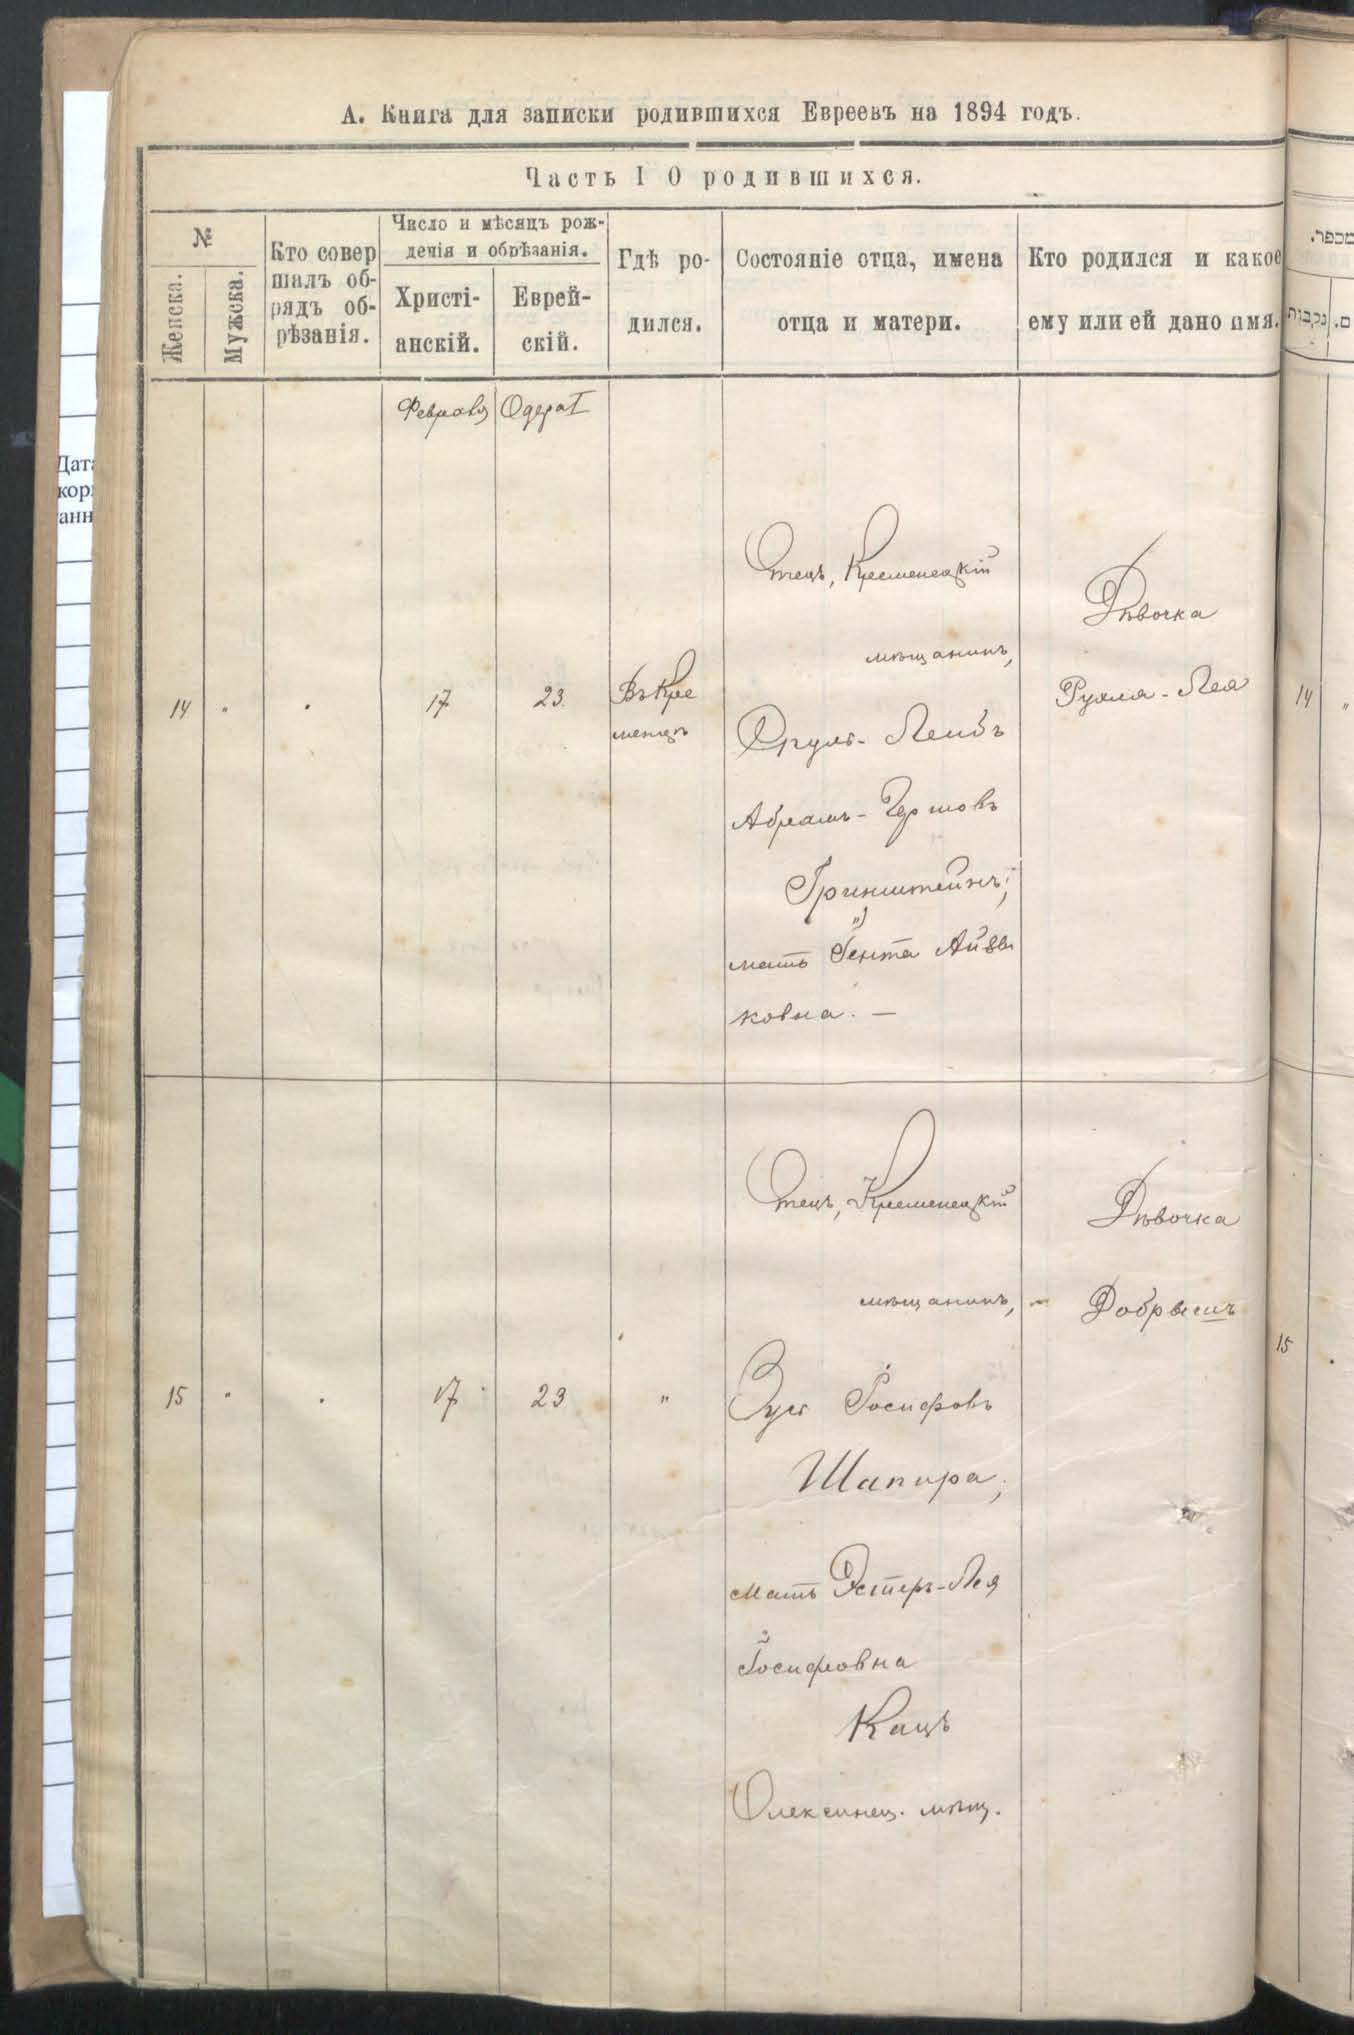 А. Книга для записки родившихся Евреевъ на 1894 годъ.
Часть I О родившихся.
№
Женска.
Мужска.
Кто совер
шалъ об-
рядъ об-
рѣзанія.
Число и мѣсяцъ рож-
денія и обрѣзанія.
Христі-
анскій.
Еврей-
скій.
Гдѣ ро-
дился.
Состояніе отца, имена
отца и матери.
Кто родился и какое
ему или ей дано имя.
Февраля
Одера I
14
"
"
17
23
Въ Кре
менцѣ
Отецъ, Кременецкій
мѣщанинъ,
Сруль-Лейбъ
Абрамъ-
Гринштейнъ;
мать Гента
ковна. —
Дѣвочка
Рухля-Лея
15
"
"
17
23
"
Отецъ, Кременецкій
мѣщанинъ,
Зусь Іосифовъ
Шапира;
мать Эстеръ-Лея
Іосифовна
Кацъ
Олексинец. мѣщ.
Дѣвочка
Добрышъ
מספר.
נקבות
ם.
14
"
15
Дата
кор
анн